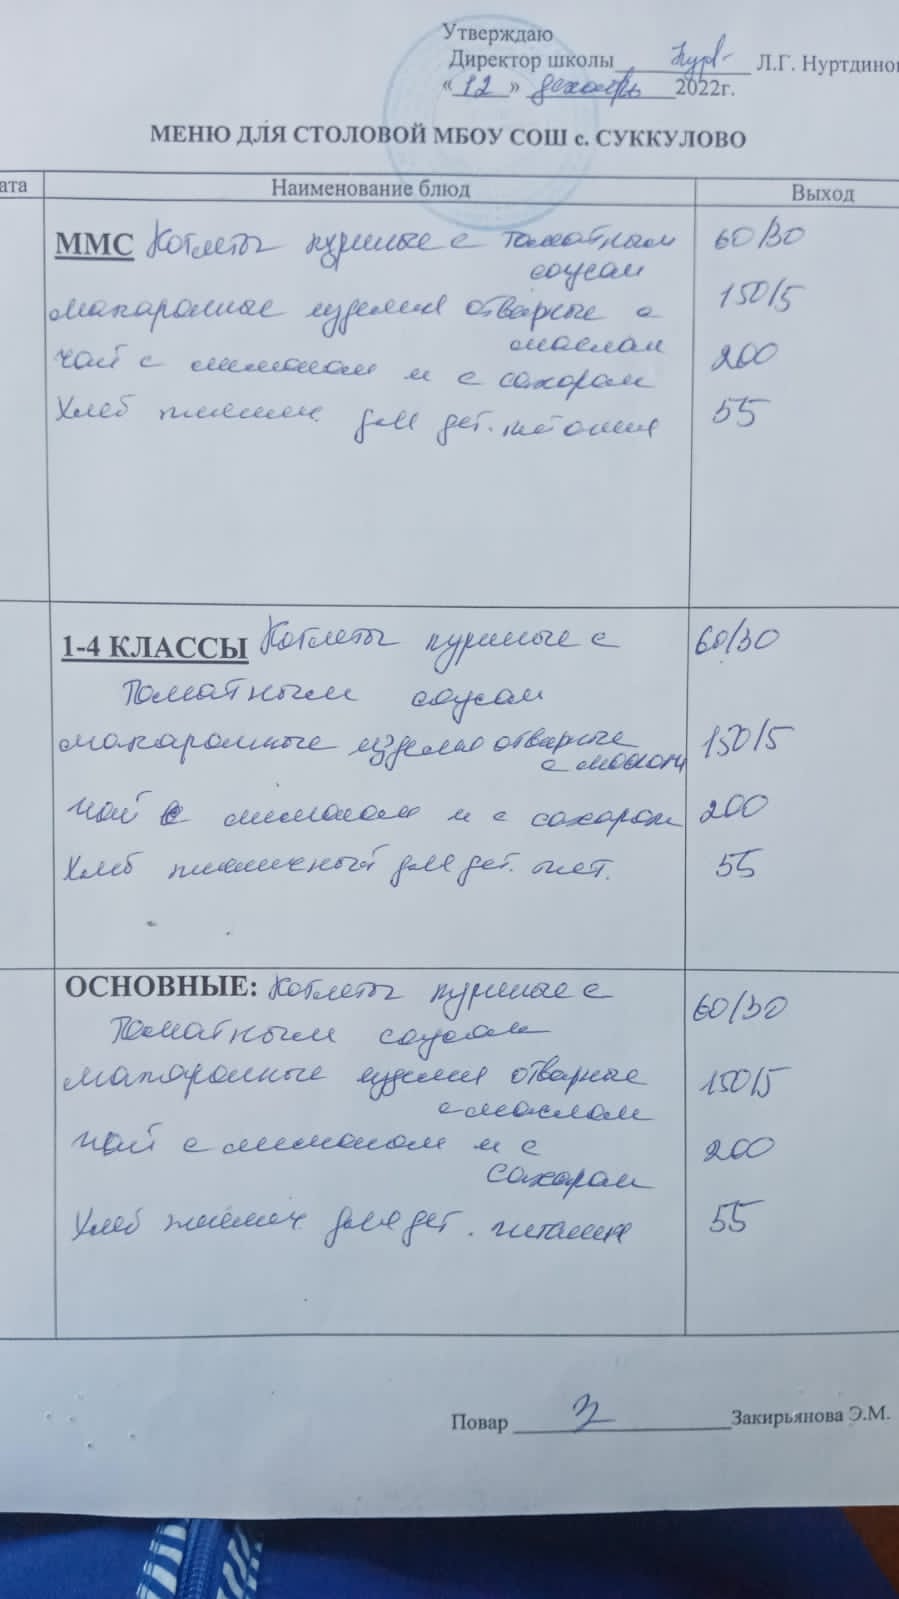 Утверждаю
Директор школы Л.Г. Нуртдинов
«12» декабрь 2022г.
МЕНЮ ДЛЯ СТОЛОВОЙ МБОУ СОШ с. СУККУЛОВО
ата Наименование блюд Выход
ММС Котлеты куриные с томатным 60/30
соусом
макаронные изделия отварные с 150/5
маслом
чай с лимоном и с сахаром 200
Хлеб пшенич. для дет. питания 55
1-4 КЛАССЫ Котлеты куриные с 60/30
томатным соусом
макаронные изделия отварные 150/5
с маслом
чай с лимоном и с сахаром 200
Хлеб пшеничный для дет. пит. 55
ОСНОВНЫЕ: Котлеты куриные с 60/30
томатным соусом
макаронные изделия отварные 150/5
с маслом
чай с лимоном и с 200
сахаром
Хлеб пшенич для дет. питания 55
Повар Закирьянова Э.М.